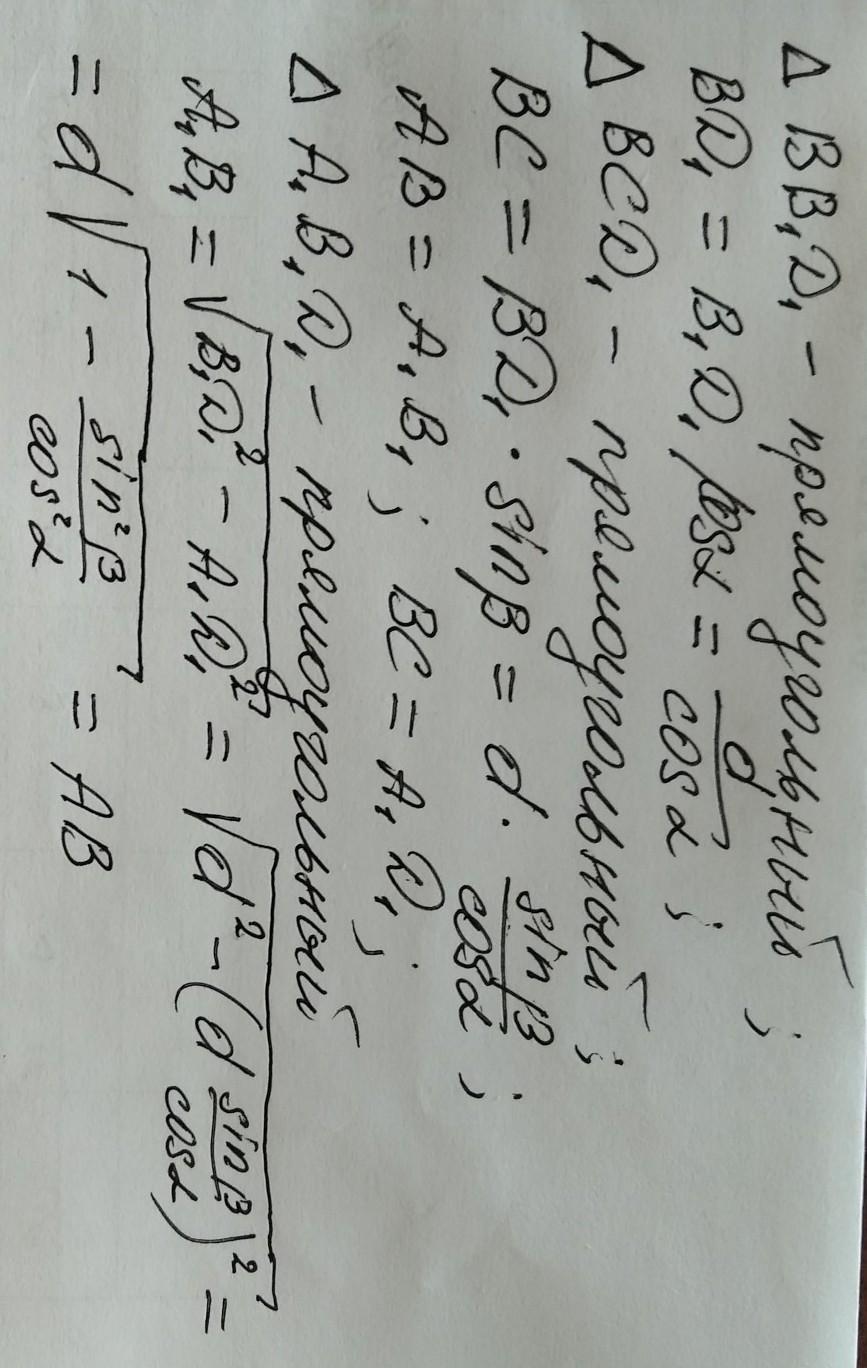 △ BB₁D₁ - прямоугольный ;
BD₁ = B₁D₁ / cosα = d / cosα ;
△ BCD₁ - прямоугольный ;
BC = BD₁ · sinβ = d · sinβ / cosα ;
AB = A₁B₁ ; BC = A₁D₁ ;
△ A₁B₁D₁ - прямоугольный
A₁B₁ = √(B₁D₁² - A₁D₁²) = √(d² - (d sinβ / cosα)²) =
= d √(1 - sin²β / cos²α) = AB